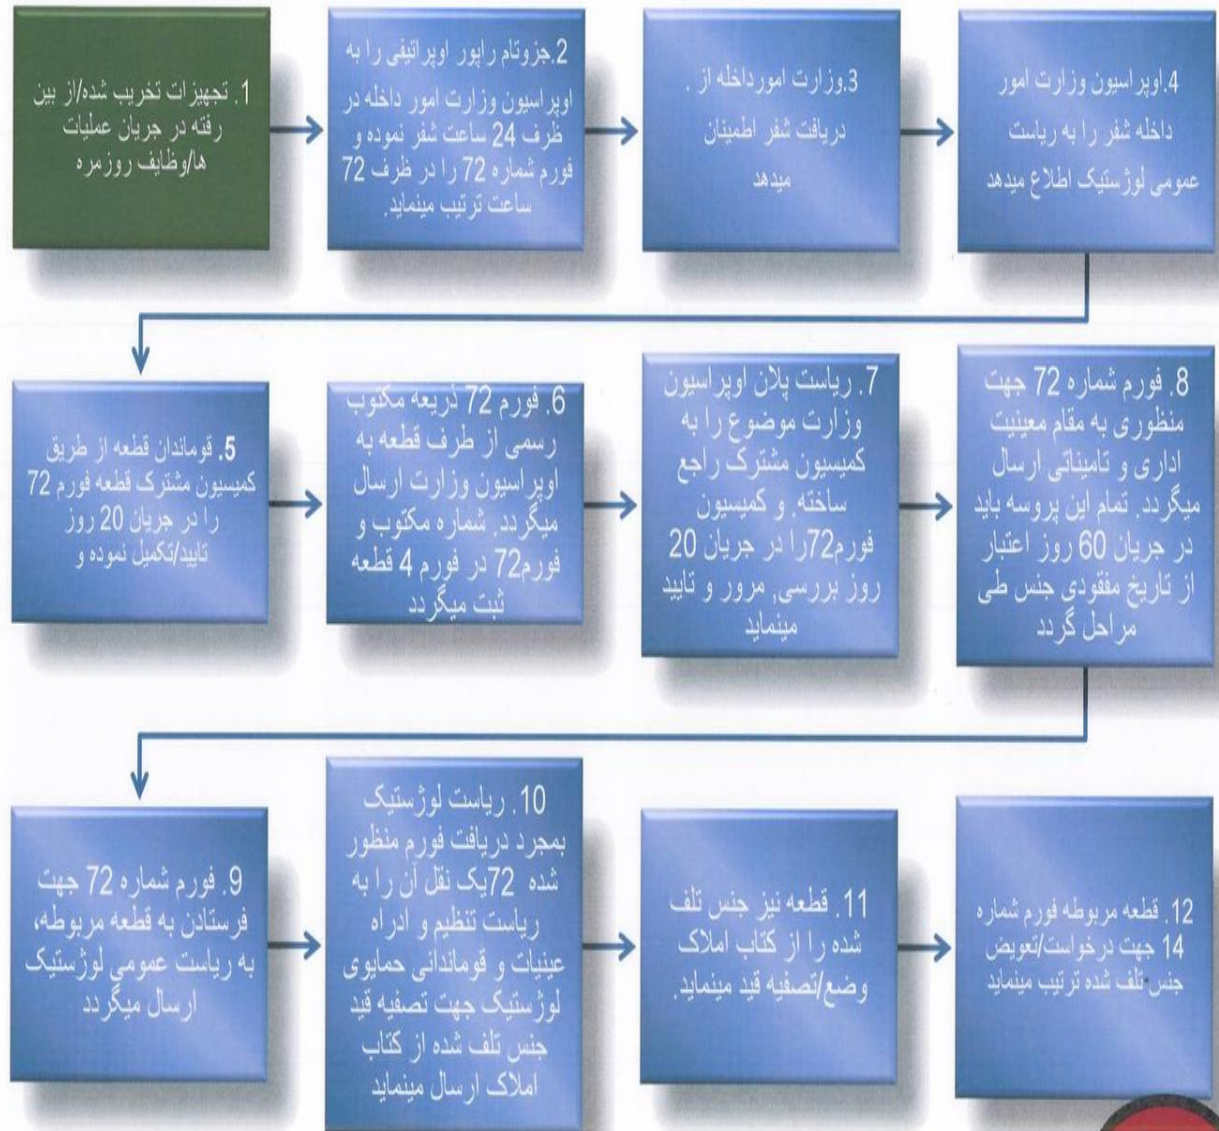 1. تجهیزات تخریب شده/از بین
رفته در جریان عملیات
ها/وظایف روزمره
2.جزوتام راپور اوپراتیفی را به
اوپراسیون وزارت امور داخله در
ظرف 24 ساعت شفر نموده و
فورم شماره 72 را در ظرف 72
ساعت ترتیب مینماید.
3.وزارت امورداخله از .
دریافت شفر اطمینان
میدهد
4.اوپراسیون وزارت امور
داخله شفر را به ریاست
عمومی لوژستیک اطلاع میدهد
5. قوماندان قطعه از طریق
کمیسیون مشترک قطعه فورم 72
را در جریان 20 روز
تایید/تکمیل نموده و
6. فورم 72 ذریعه مکتوب
رسمی از طرف قطعه به
اوپراسیون وزارت ارسال
میگردد. شماره مکتوب و
فورم72 در فورم 4 قطعه
ثبت میگردد
7. ریاست پلان اوپراسیون
وزارت موضوع را به
کمیسیون مشترک راجع
ساخته. و کمیسیون
فورم72را در جریان 20
روز بررسی, مرور و تایید
مینماید
8. فورم شماره 72 جهت
منظوری به مقام معینیت
اداری و تامیناتی ارسال
میگردد. تمام این پروسه باید
در جریان 60 روز اعتبار
از تاریخ مفقودی جنس طی
مراحل گردد
9. فورم شماره 72 جهت
فرستادن به قطعه مربوطه،
به ریاست عمومی لوژستیک
ارسال میگردد
10. ریاست لوژستیک
بمجرد دریافت فورم منظور
شده 72یک نقل آن را به
ریاست تنظیم و ادراه
عینیات و قوماندانی حمایوی
لوژستیک جهت تصفیه قید
جنس تلف شده از کتاب
املاک ارسال مینماید
11. قطعه نیز جنس تلف
شده را از کتاب املاک
وضع/تصفیه قید مینماید.
12. قطعه مربوطه فورم شماره
14 جهت درخواست/تعویض
جنس تلف شده ترتیب مینماید